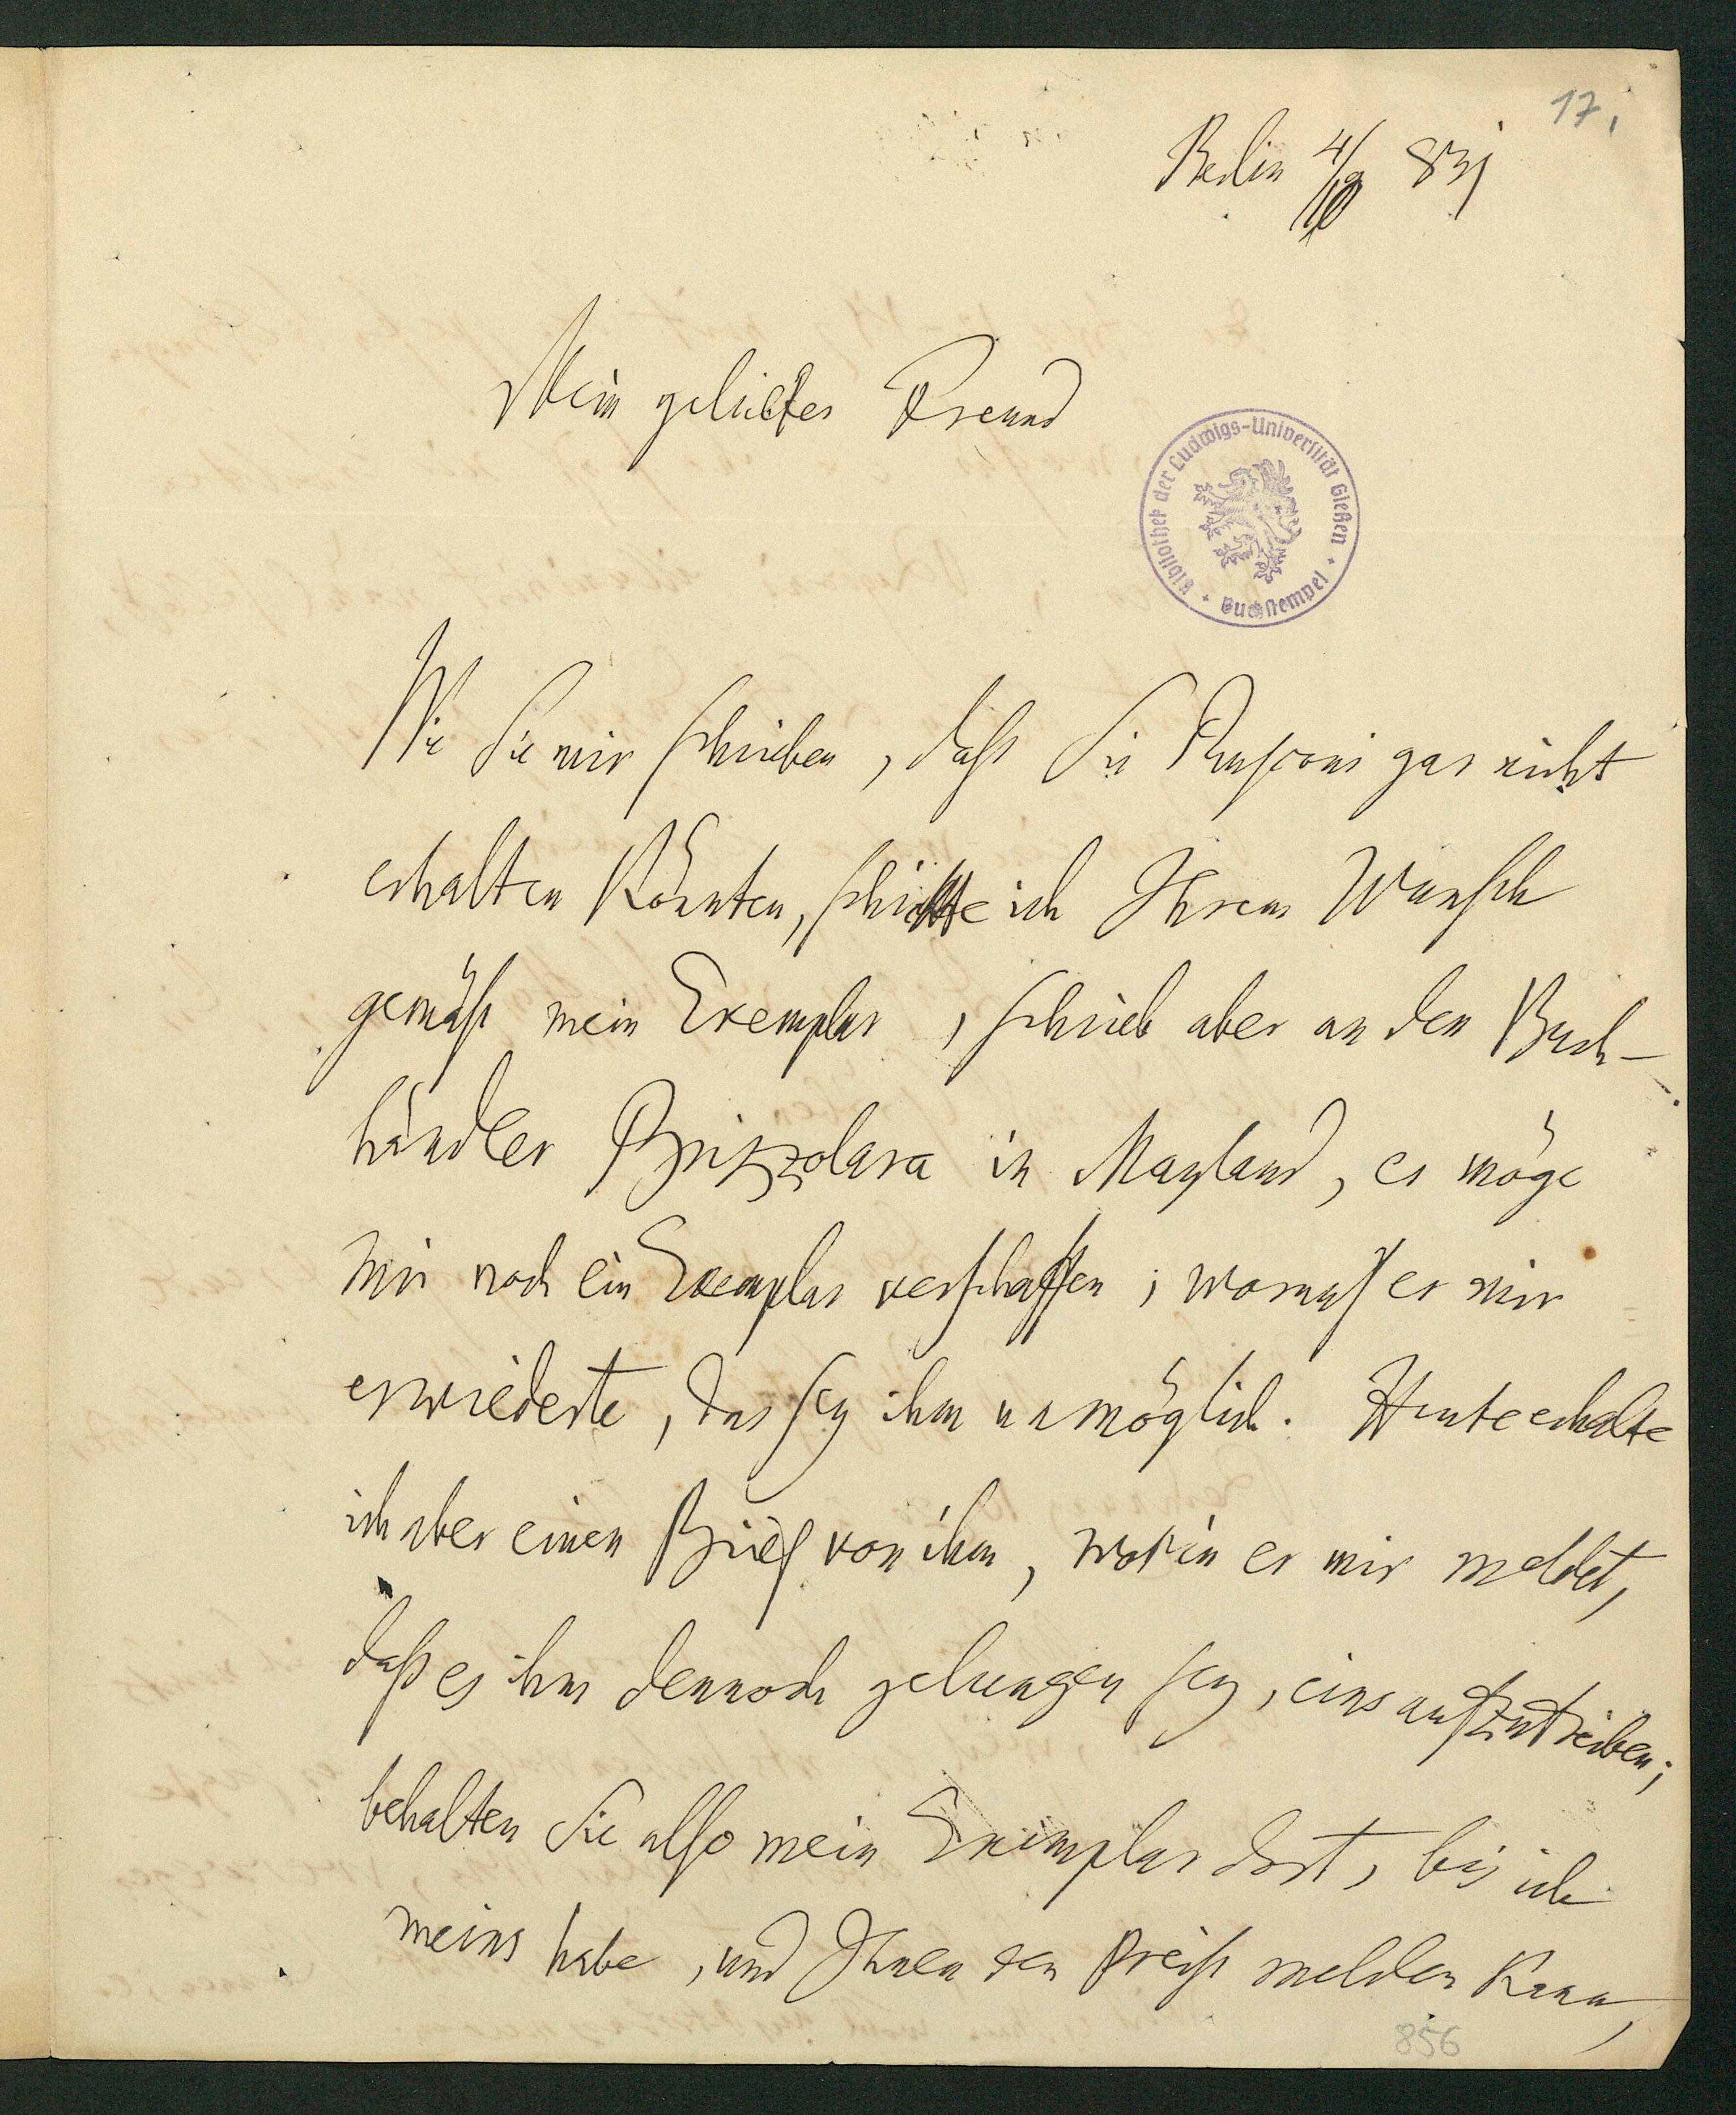 17.
Berlin 4/9 831
Mein geliebter Freund
Bibliothek der Ludwigs-Universität Gießen
Buchstempel
Wie Sie mir schrieben, daß Sie Rusconi gar nicht
erhalten könnten, schickte ich Ihrem Wunsch
gemäß mein Exemplar, schrieb aber an den Buch-
händler Brizzolara in Mayland, er möge
mir noch ein Exemplar verschaffen; worauf er mir
erwiederte, das sey ihm unmöglich. Heute erhalte
ich aber einen Brief von ihm, worin er mir meldet,
daß es ihm dennoch gelungen sey, eins aufzutreiben;
behalten Sie also mein Exemplar dort, bis ich
meins habe, und Ihnen den Preiß melden kann,
856